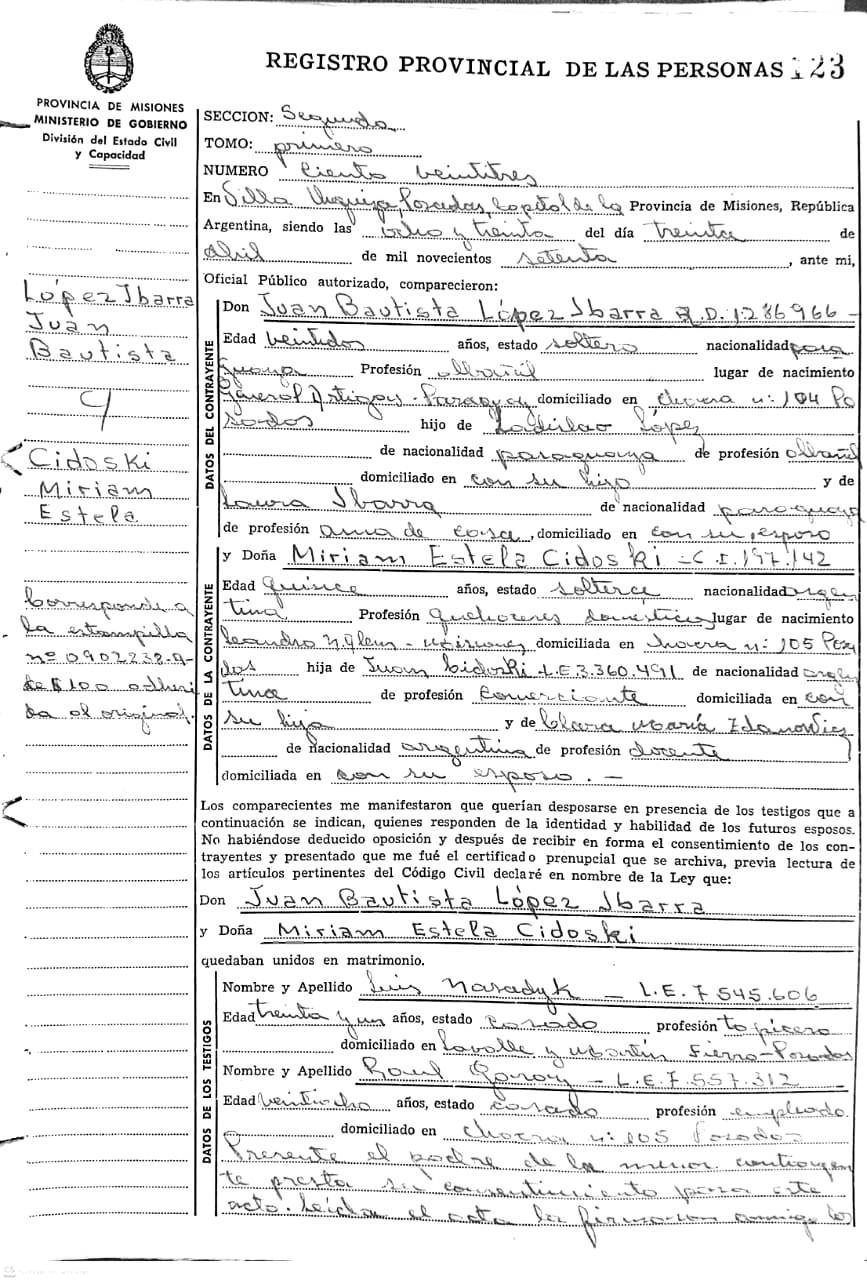 REGISTRO PROVINCIAL DE LAS PERSONAS 123
PROVINCIA DE MISIONES
MINISTERIO DE GOBIERNO
División del Estado Civil
y Capacidad
López Ibarra
Juan
Bautista
y
Cidoski
Miriam
Estela
Corresponde a
la estampilla
nº 0902238-9
de $ 100 adheri
da al original.
SECCION: Segunda
TOMO: primero
NUMERO Ciento veintitres
En Villa Urquiza, Posadas, Capital de la Provincia de Misiones, República
Argentina, siendo las ocho y treinta del día treinta de
abril de mil novecientos setenta, ante mi,
Oficial Público autorizado, comparecieron:
DATOS DEL CONTRAYENTE
Don Juan Bautista López Ibarra R.D. 1.286966 -
Edad veintidos años, estado soltero nacionalidad para
guaya Profesión albañil lugar de nacimiento
General Artigas - Paraguay domiciliado en chacra n: 104 Po
sadas hijo de Ladislao López
de nacionalidad paraguaya de profesión albañil
domiciliado en con su hijo y de
Laura Ibarra de nacionalidad paraguaya
de profesión ama de casa, domiciliado en con su esposo
DATOS DE LA CONTRAYENTE
y Doña Miriam Estela Cidoski - C.I. 197.142
Edad quince años, estado soltera nacionalidad argen
tina Profesión quehaceres domesticos lugar de nacimiento
Leandro N. Alem - Misiones domiciliada en chacra n: 105 Posa
das hija de Juan Cidoski L.E. 3.360.491 de nacionalidad argen
tina de profesión Comerciante domiciliada en con
su hija y de Clara María Zdanowicz
de nacionalidad argentina de profesión docente
domiciliada en con su esposo. -
Los comparecientes me manifestaron que querían desposarse en presencia de los testigos que a
continuación se indican, quienes responden de la identidad y habilidad de los futuros esposos.
No habiéndose deducido oposición y después de recibir en forma el consentimiento de los con-
trayentes y presentado que me fué el certificado prenupcial que se archiva, previa lectura de
los artículos pertinentes del Código Civil declaré en nombre de la Ley que:
Don Juan Bautista López Ibarra
y Doña Miriam Estela Cidoski
quedaban unidos en matrimonio.
DATOS DE LOS TESTIGOS
Nombre y Apellido Luis Naradyk - L.E. 7 545.606
Edad treinta y un años, estado casado profesión tapicero
domiciliado en Lavalle y Martín Fierro - Posadas
Nombre y Apellido Raul - L.E. 7.557.312
Edad veintiocho años, estado casado profesión empleado
domiciliado en chacra n: 105 Posadas
Presente el padre de la menor contrayen
te presta su consentimiento para este
acto. Leída el acta la firmaron conmigo los